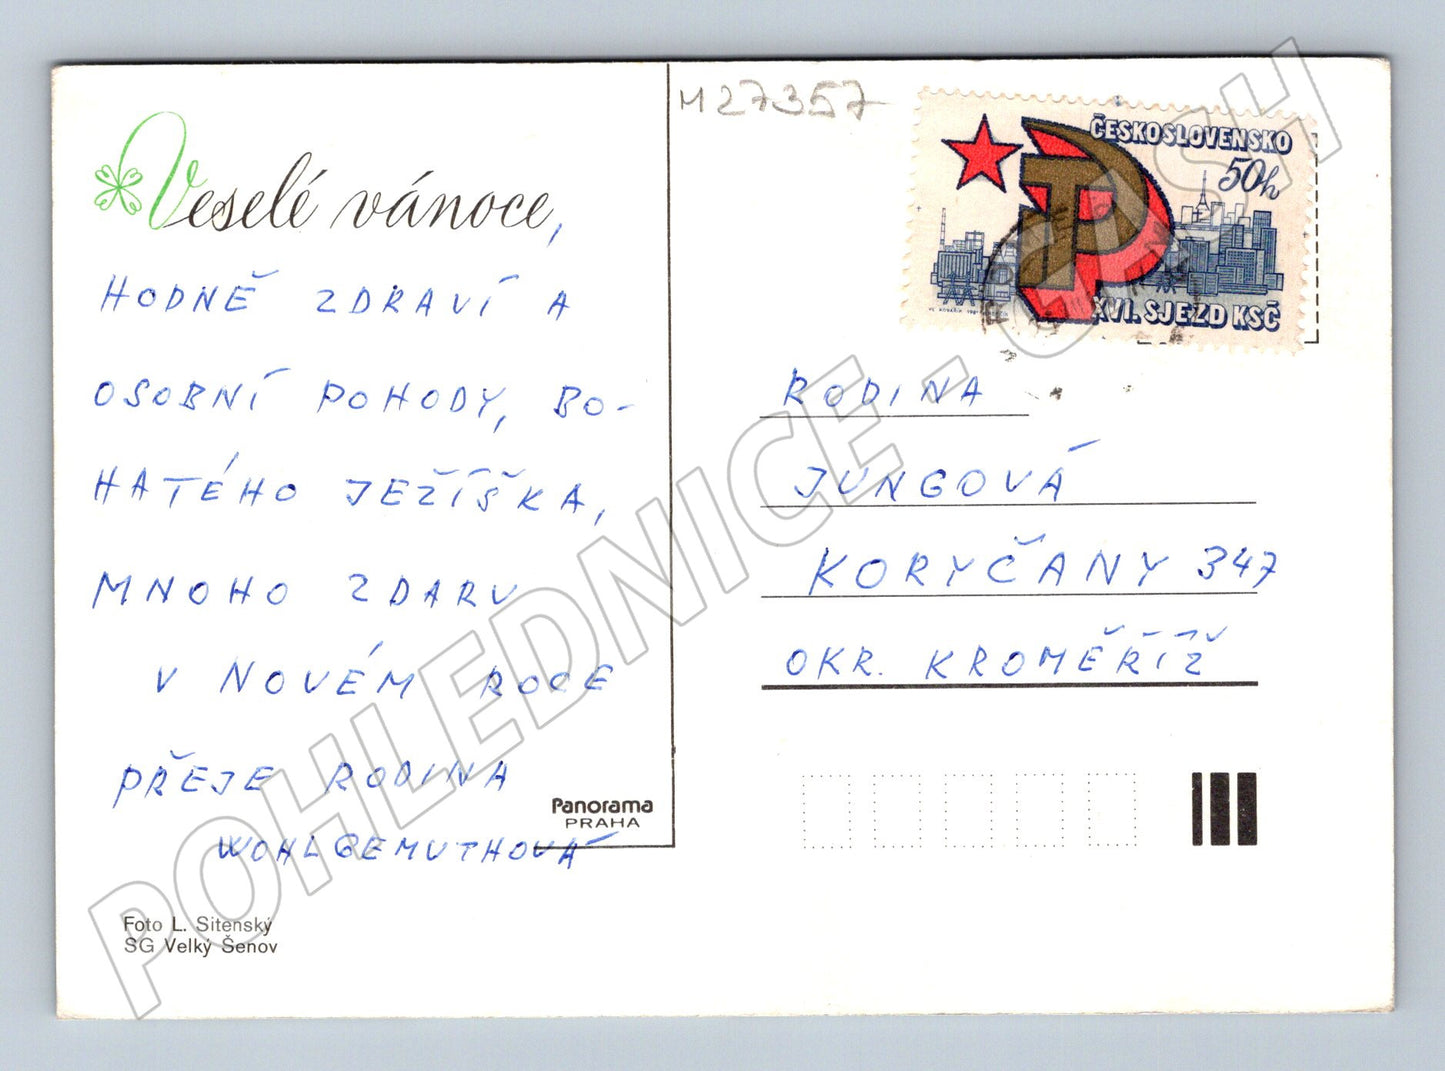 M27357
Veselé vánoce,
HODNĚ ZDRAVÍ A
OSOBNÍ POHODY, BO-
HATÉHO JEŽÍŠKA,
MNOHO ZDARU
V NOVÉM ROCE
PŘEJE RODINA
WOHLGEMUTHOVÁ
Panorama
PRAHA
Foto L. Sitenský
SG Velký Šenov
ČESKOSLOVENSKO
50h
XVI. SJEZD KSČ
RODINA
JUNGOVÁ
KORYČANY 347
OKR. KROMĚŘÍŽ
POHLEDNICE - CASH